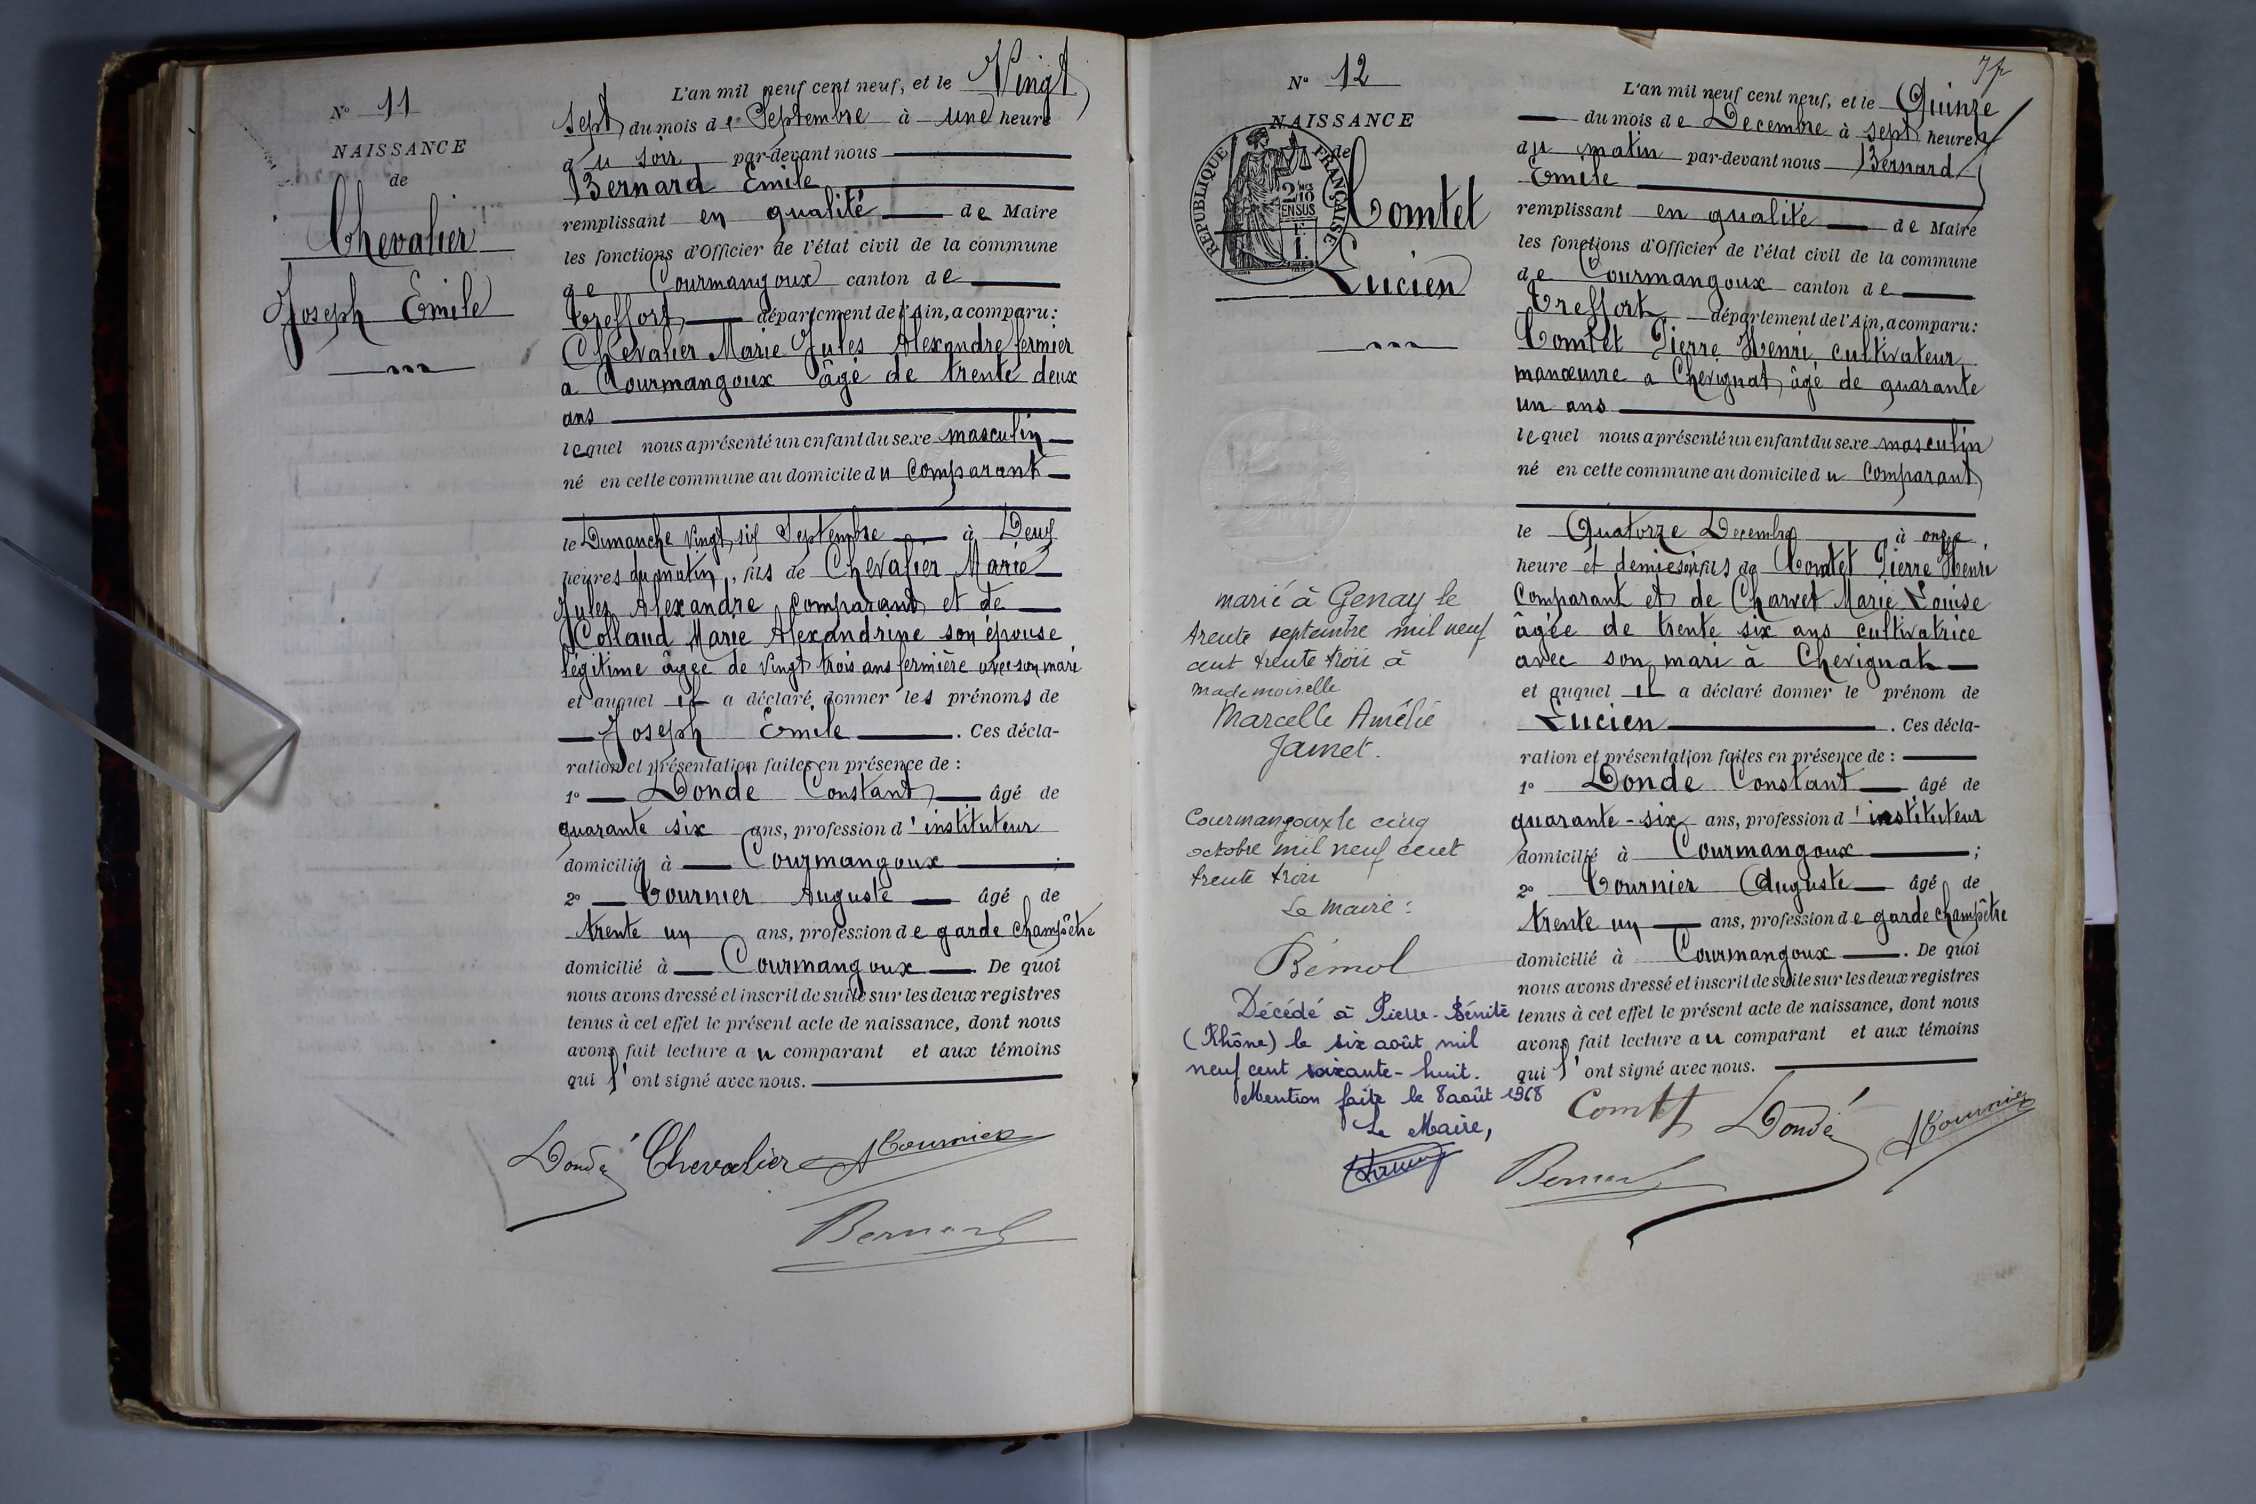 N° 11
NAISSANCE
de
Chevalier
Joseph Emile
L'an mil neuf cent neuf, et le Vingt
sept du mois de Septembre à une heure
du soir par-devant nous
Bernard Emile
remplissant en qualité de Maire
les fonctions d'Officier de l'état civil de la commune
de Courmangoux canton de
Treffort département de l'Ain, a comparu :
Chevalier Marie Jules Alexandre fermier
a Courmangoux âgé de trente deux
ans
lequel nous a présenté un enfant du sexe masculin
né en cette commune au domicile du Comparant
le Dimanche vingt six Septembre à Deux
heures du matin, fils de Chevalier Marie
Jules Alexandre comparant et de
Collaud Marie Alexandrine son épouse
légitime âgée de vingt trois ans fermière avec son mari
et auquel il a déclaré donner les prénoms de
Joseph Emile . Ces décla-
ration et présentation faites en présence de :
1° Donde Constant âgé de
quarante six ans, profession d'instituteur
domicilié à Courmangoux ;
2° Tournier Auguste âgé de
trente un ans, profession de garde champêtre
domicilié à Courmangoux . De quoi
nous avons dressé et inscrit de suite sur les deux registres
tenus à cet effet le présent acte de naissance, dont nous
avons fait lecture au comparant et aux témoins
qui l'ont signé avec nous.
Dondé Chevalier A Tournier
Bernard
7/2
N° 12
NAISSANCE
de
REPUBLIQUE FRANÇAISE
2/10 EN SUS
Comtet
Lucien
L'an mil neuf cent neuf, et le Quinze
du mois de Decembre à sept heures
du matin par-devant nous Bernard
Emile
remplissant en qualité de Maire
les fonctions d'Officier de l'état civil de la commune
de Courmangoux canton de
Treffort département de l'Ain, a comparu :
Comtet Pierre Henri, cultivateur
manœuvre a Chevignat âgé de quarante
un ans
lequel nous a présenté un enfant du sexe masculin
né en cette commune au domicile du Comparant
le Quatorze Decembre à onze
heure et demie soir fils de Comtet Pierre Henri
Comparant et de Charvet Marie Louise
âgée de trente six ans cultivatrice
avec son mari à Chevignat
et auquel il a déclaré donner le prénom de
Lucien . Ces décla-
ration et présentation faites en présence de :
1° Donde Constant âgé de
quarante-six ans, profession d'instituteur
domicilié à Courmangoux ;
2° Tournier Auguste âgé de
trente un ans, profession de garde champêtre
domicilié à Courmangoux . De quoi
nous avons dressé et inscrit de suite sur les deux registres
tenus à cet effet le présent acte de naissance, dont nous
avons fait lecture au comparant et aux témoins
qui l'ont signé avec nous.
Comtet Dondé A Tournier
Bernard
marié à Genay le
trente septembre mil neuf
cent trente trois à
mademoiselle
Marcelle Amélie
Jamet.
Courmangoux le cinq
octobre mil neuf cent
trente trois
Le maire :
Bémol
Décédé à Pierre-Bénite
(Rhône) le six août mil
neuf cent soixante-huit.
Mention faite le 8 août 1968
Le Maire,